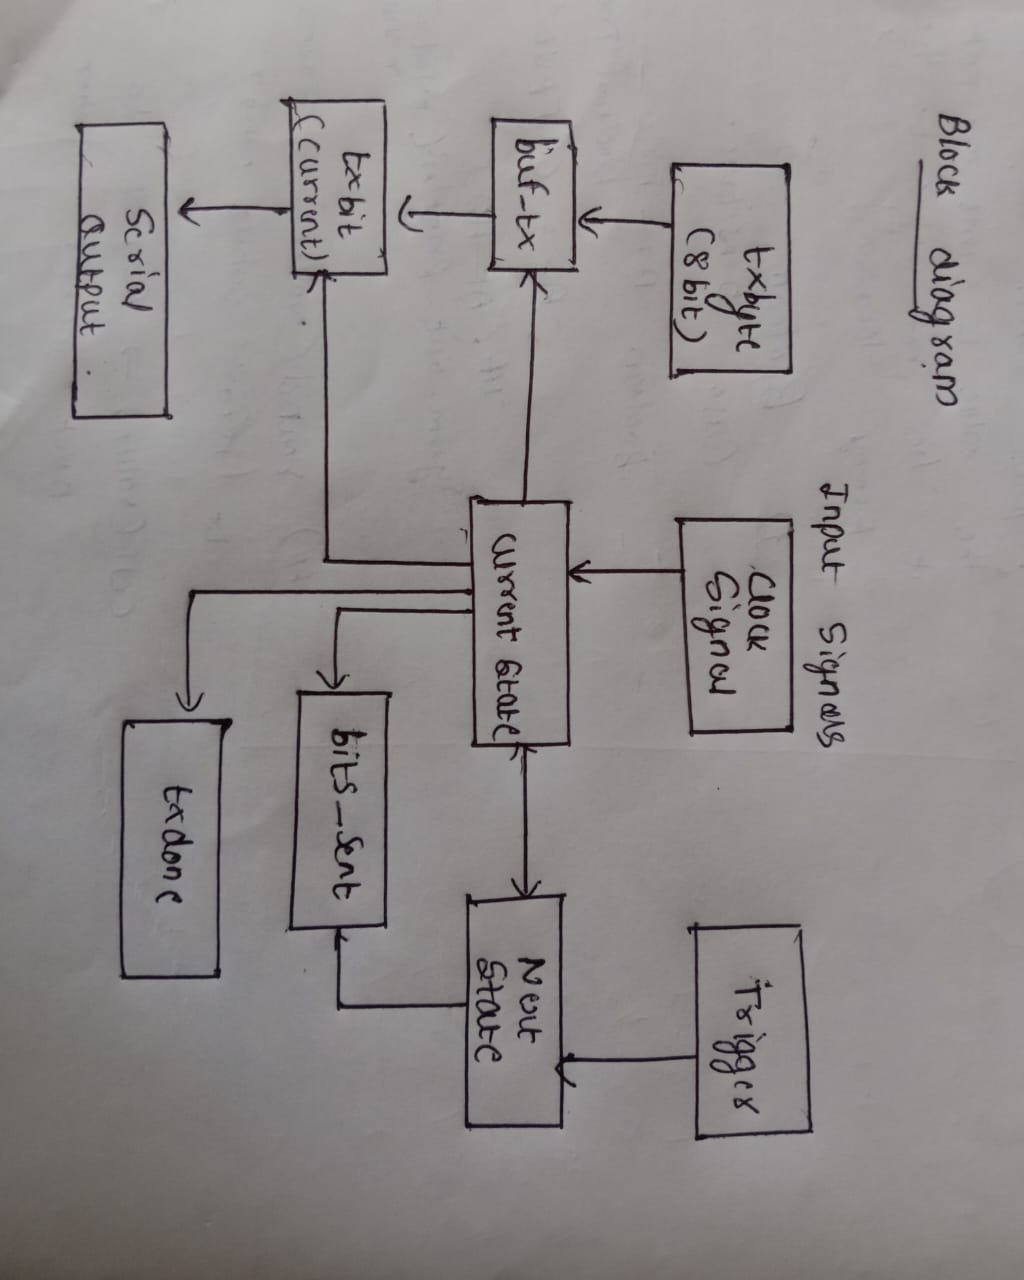 Block diagram
Input Signals
txbyte
(8 bit)
Clock
Signal
Trigger
buf-tx
Current State
Next
State
txbit
(current)
bits_sent
Serial
output
txdone